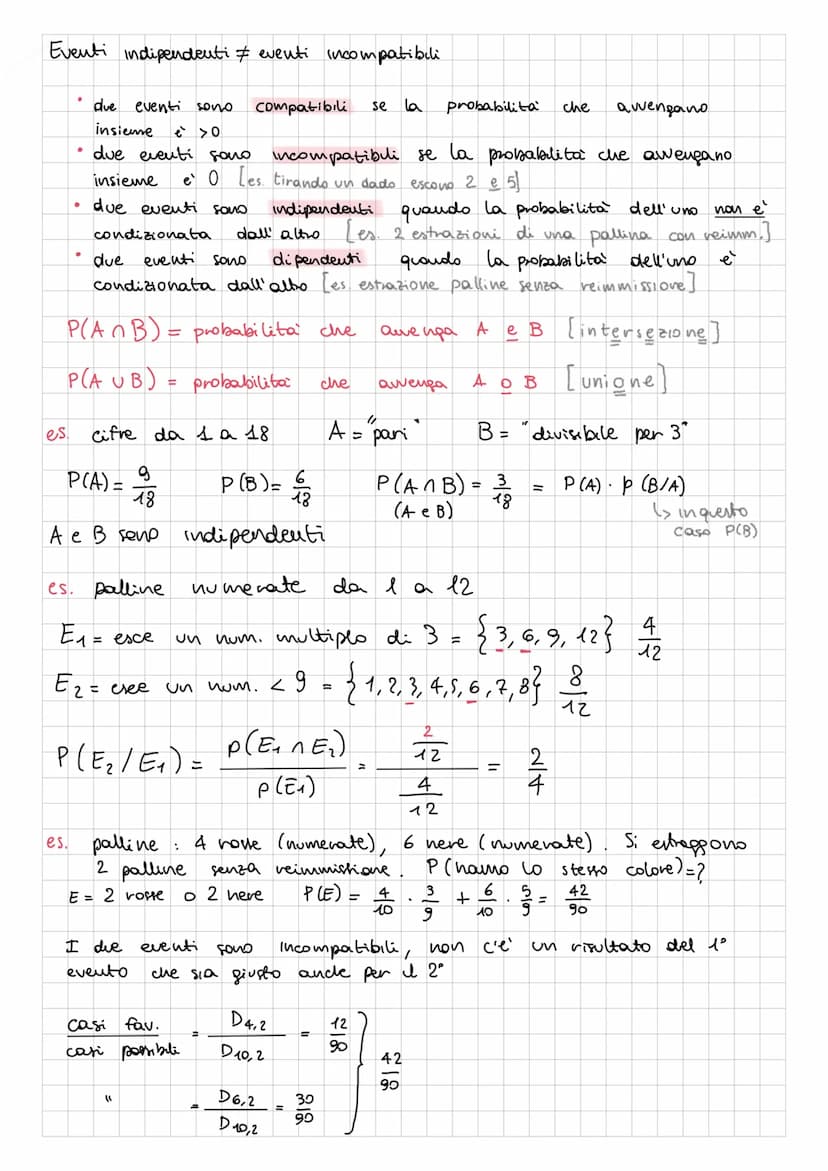 Eventi indipendenti ≠ eventi incompatibili
• due eventi sono compatibili se la probabilità che avvengano
insieme è >0
• due eventi sono incompatibili se la probabilità che avvengano
insieme e' 0 [es. tirando un dado escono 2 e 5]
• due eventi sono indipendenti quando la probabilità dell'uno non è
condizionata dall'altro [es. 2 estrazioni di una pallina con reimm.]
• due eventi sono dipendenti quando la probabilità dell'uno è
condizionata dall'altro [es. estrazione palline senza reimmissione]
P(A ∩ B) = probabilità che avvenga A e B [intersezione]
P(A ∪ B) = probabilità che avvenga A o B [unione]
es. cifre da 1 a 18 A = "pari" B = "divisibile per 3"
P(A) = 9/18 P(B) = 6/18 P(A ∩ B) = 3/18 = P(A) · p(B/A)
(A e B) ↳ in questo
A e B sono indipendenti caso P(B)
es. palline numerate da 1 a 12
E1 = esce un num. multiplo di 3 = {3, 6, 9, 12} 4/12
E2 = esce un num. < 9 = {1, 2, 3, 4, 5, 6, 7, 8} 8/12
P(E2/E1) = p(E1 ∩ E2)/p(E1) = (2/12)/(4/12) = 2/4
es. palline : 4 rosse (numerate), 6 nere (numerate). Si estraggono
2 palline senza reimmissione. P(hanno lo stesso colore)=?
E = 2 rosse o 2 nere P(E) = 4/10 · 3/9 + 6/10 · 5/9 = 42/90
I due eventi sono incompatibili, non c'è un risultato del 1°
evento che sia giusto anche per il 2°
casi fav./casi possibili = D4,2/D10,2 = 12/90
42/90
" = D6,2/D10,2 = 30/90